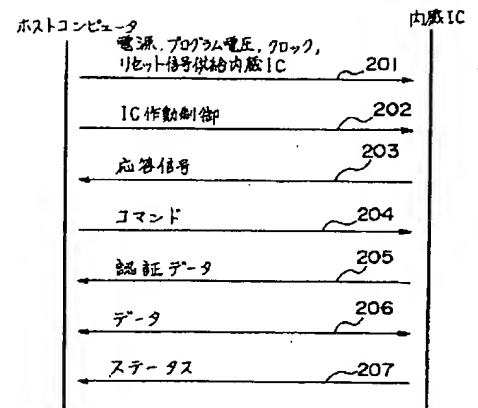 ホストコンピュータ
内蔵IC
電源、プログラム電圧、クロック、
リセット信号供給内蔵IC
201
IC作動制御
202
応答信号
203
コマンド
204
認証データ
205
データ
206
ステータス
207